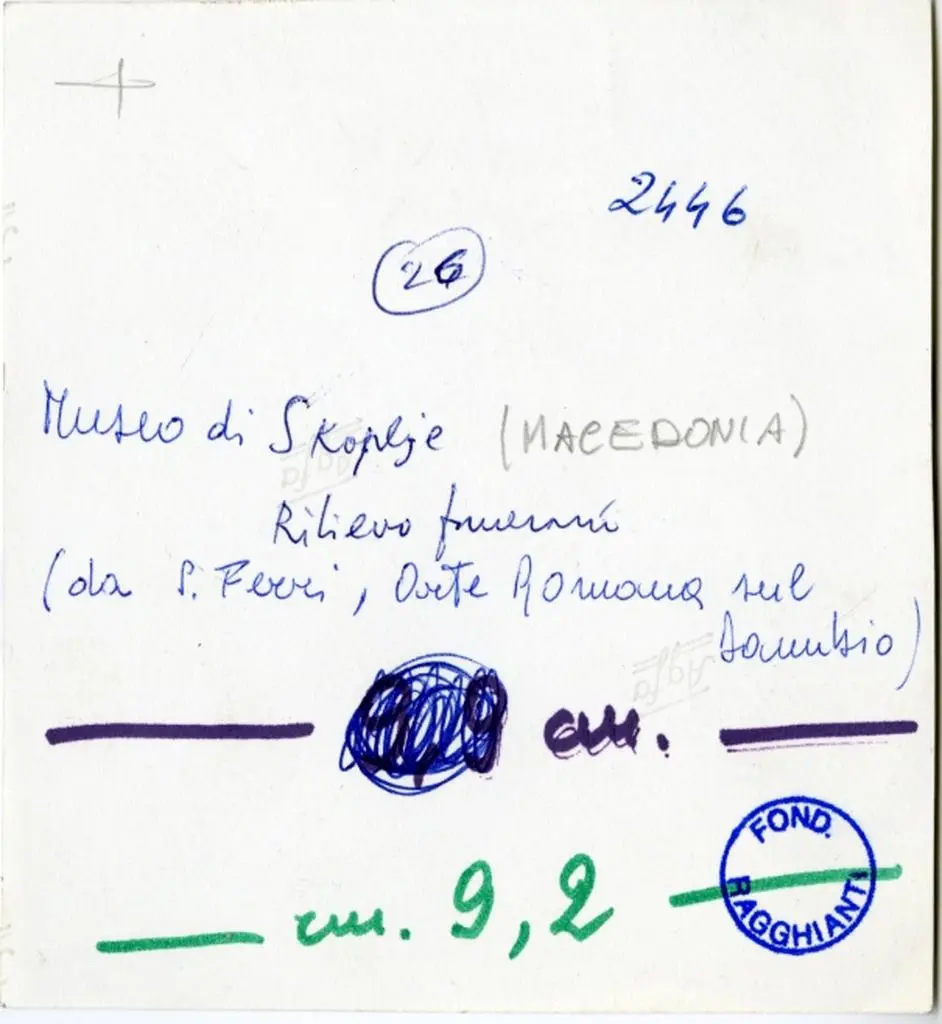 2446
26
Museo di Skoplje (MACEDONIA)
Rilievo funerario
(da S. Ferri, Arte Romana sul
Danubio)
9,9 cm.
cm. 9,2
FOND.
RAGGHIANTI
Agfa
Agfa